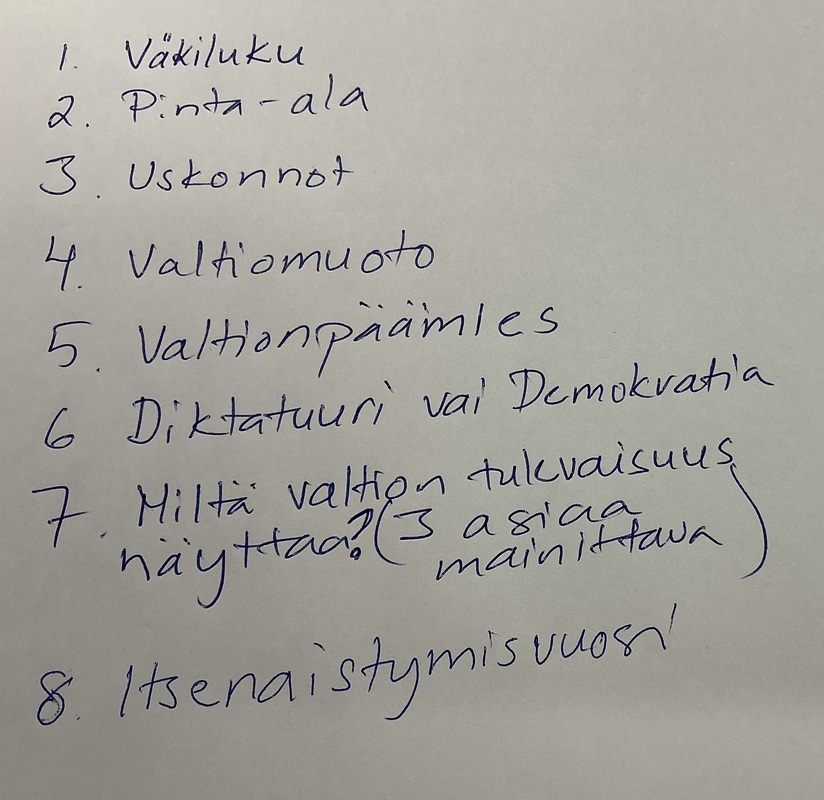 1. Väkiluku
2. Pinta-ala
3. Uskonnot
4. Valtiomuoto
5. Valtionpäämies
6 Diktatuuri vai Demokratia
7. Miltä valtion tulevaisuus
näyttaa? (3 asiaa
mainittava)
8. Itsenaistymisvuosi